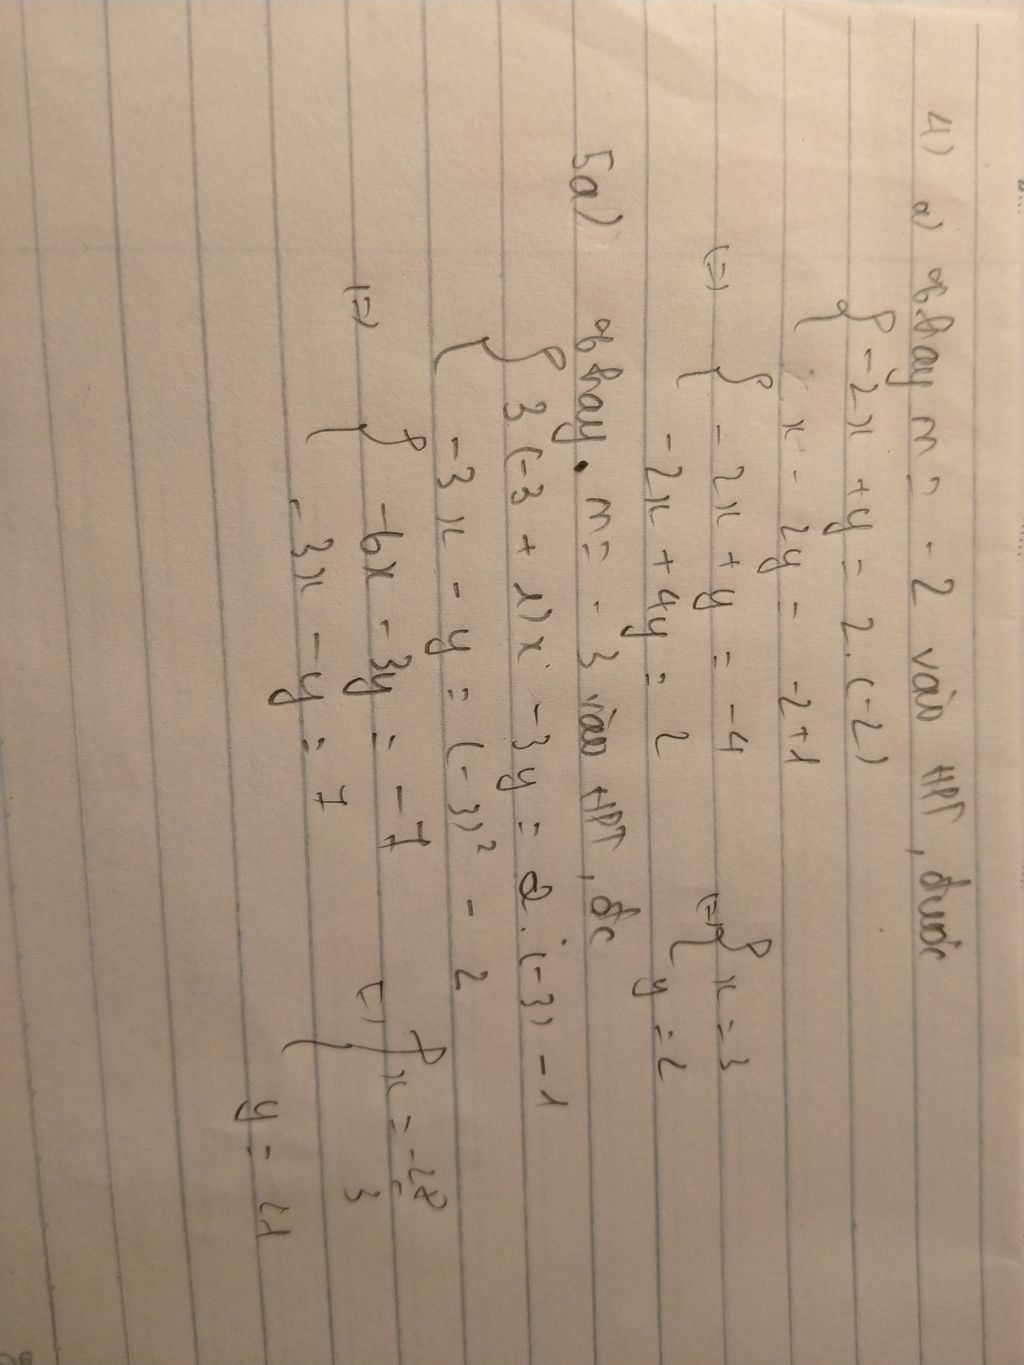 4) a) Thay m = -2 vào HPT, được
{ -2x + y = 2.(-2)
x - 2y = -2+1
(=) { -2x + y = -4 (=) { x = 3
-2x + 4y = 2 y = 2
5a) Thay m = -3 vào HPT, đc
{ 3(-3 + 1)x - 3y = 2.(-3) - 1
-3x - y = (-3)² - 2
(=) { -6x - 3y = -7 (=) { x = -28/3
-3x - y = 7 y = 21